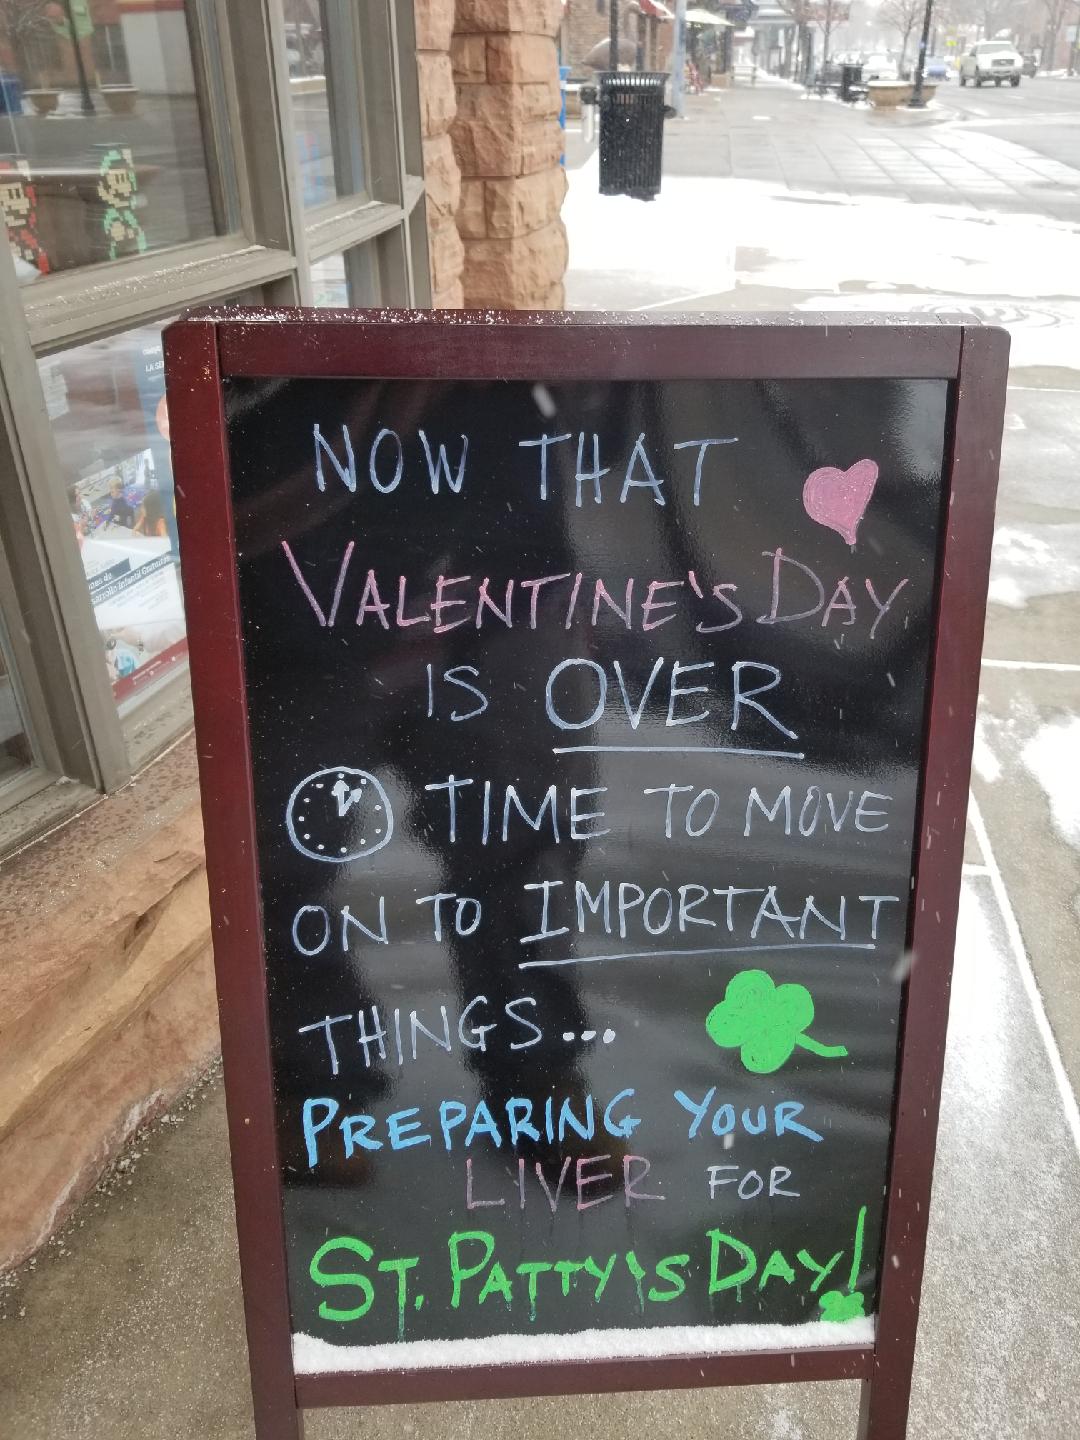 NOW THAT
VALENTINE'S DAY
IS OVER
TIME TO MOVE
ON TO IMPORTANT
THINGS...
PREPARING YOUR
LIVER FOR
ST. PATTY'S DAY!